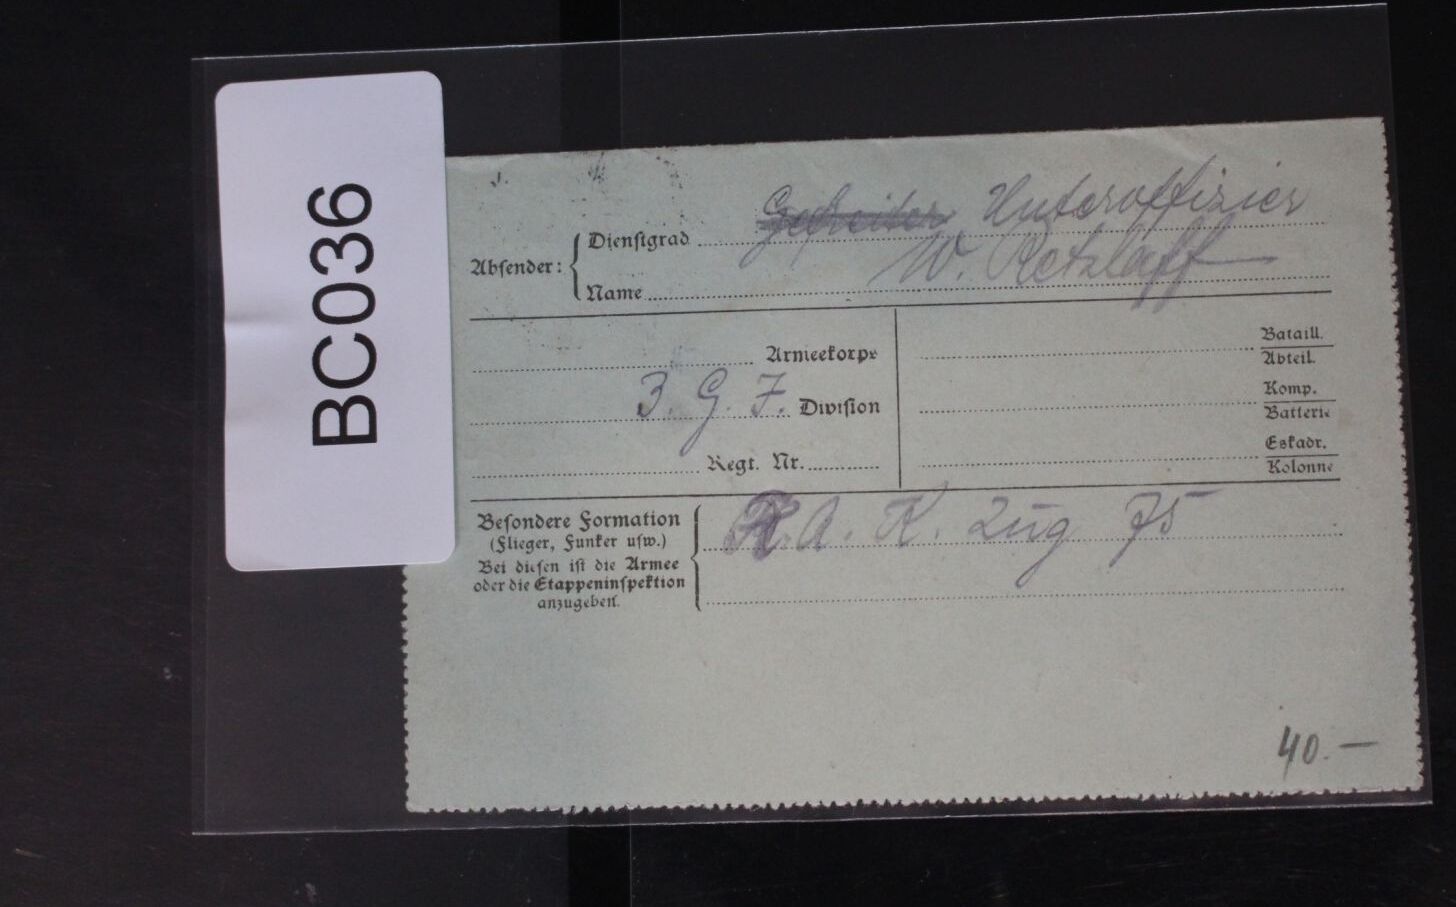 BC036
Gefreiter Unteroffizier
Absender: Dienstgrad
W. Retzlaff
Name
Armeekorps
3. G. J. Division
Regt. Nr.
Bataill.
Abteil.
Komp.
Batterie
Eskadr.
Kolonne
Besondere Formation
(Flieger, Funker usw.)
Bei diesen ist die Armee
oder die Etappeninspektion
anzugeben.
A. K. Zug 75
40.—